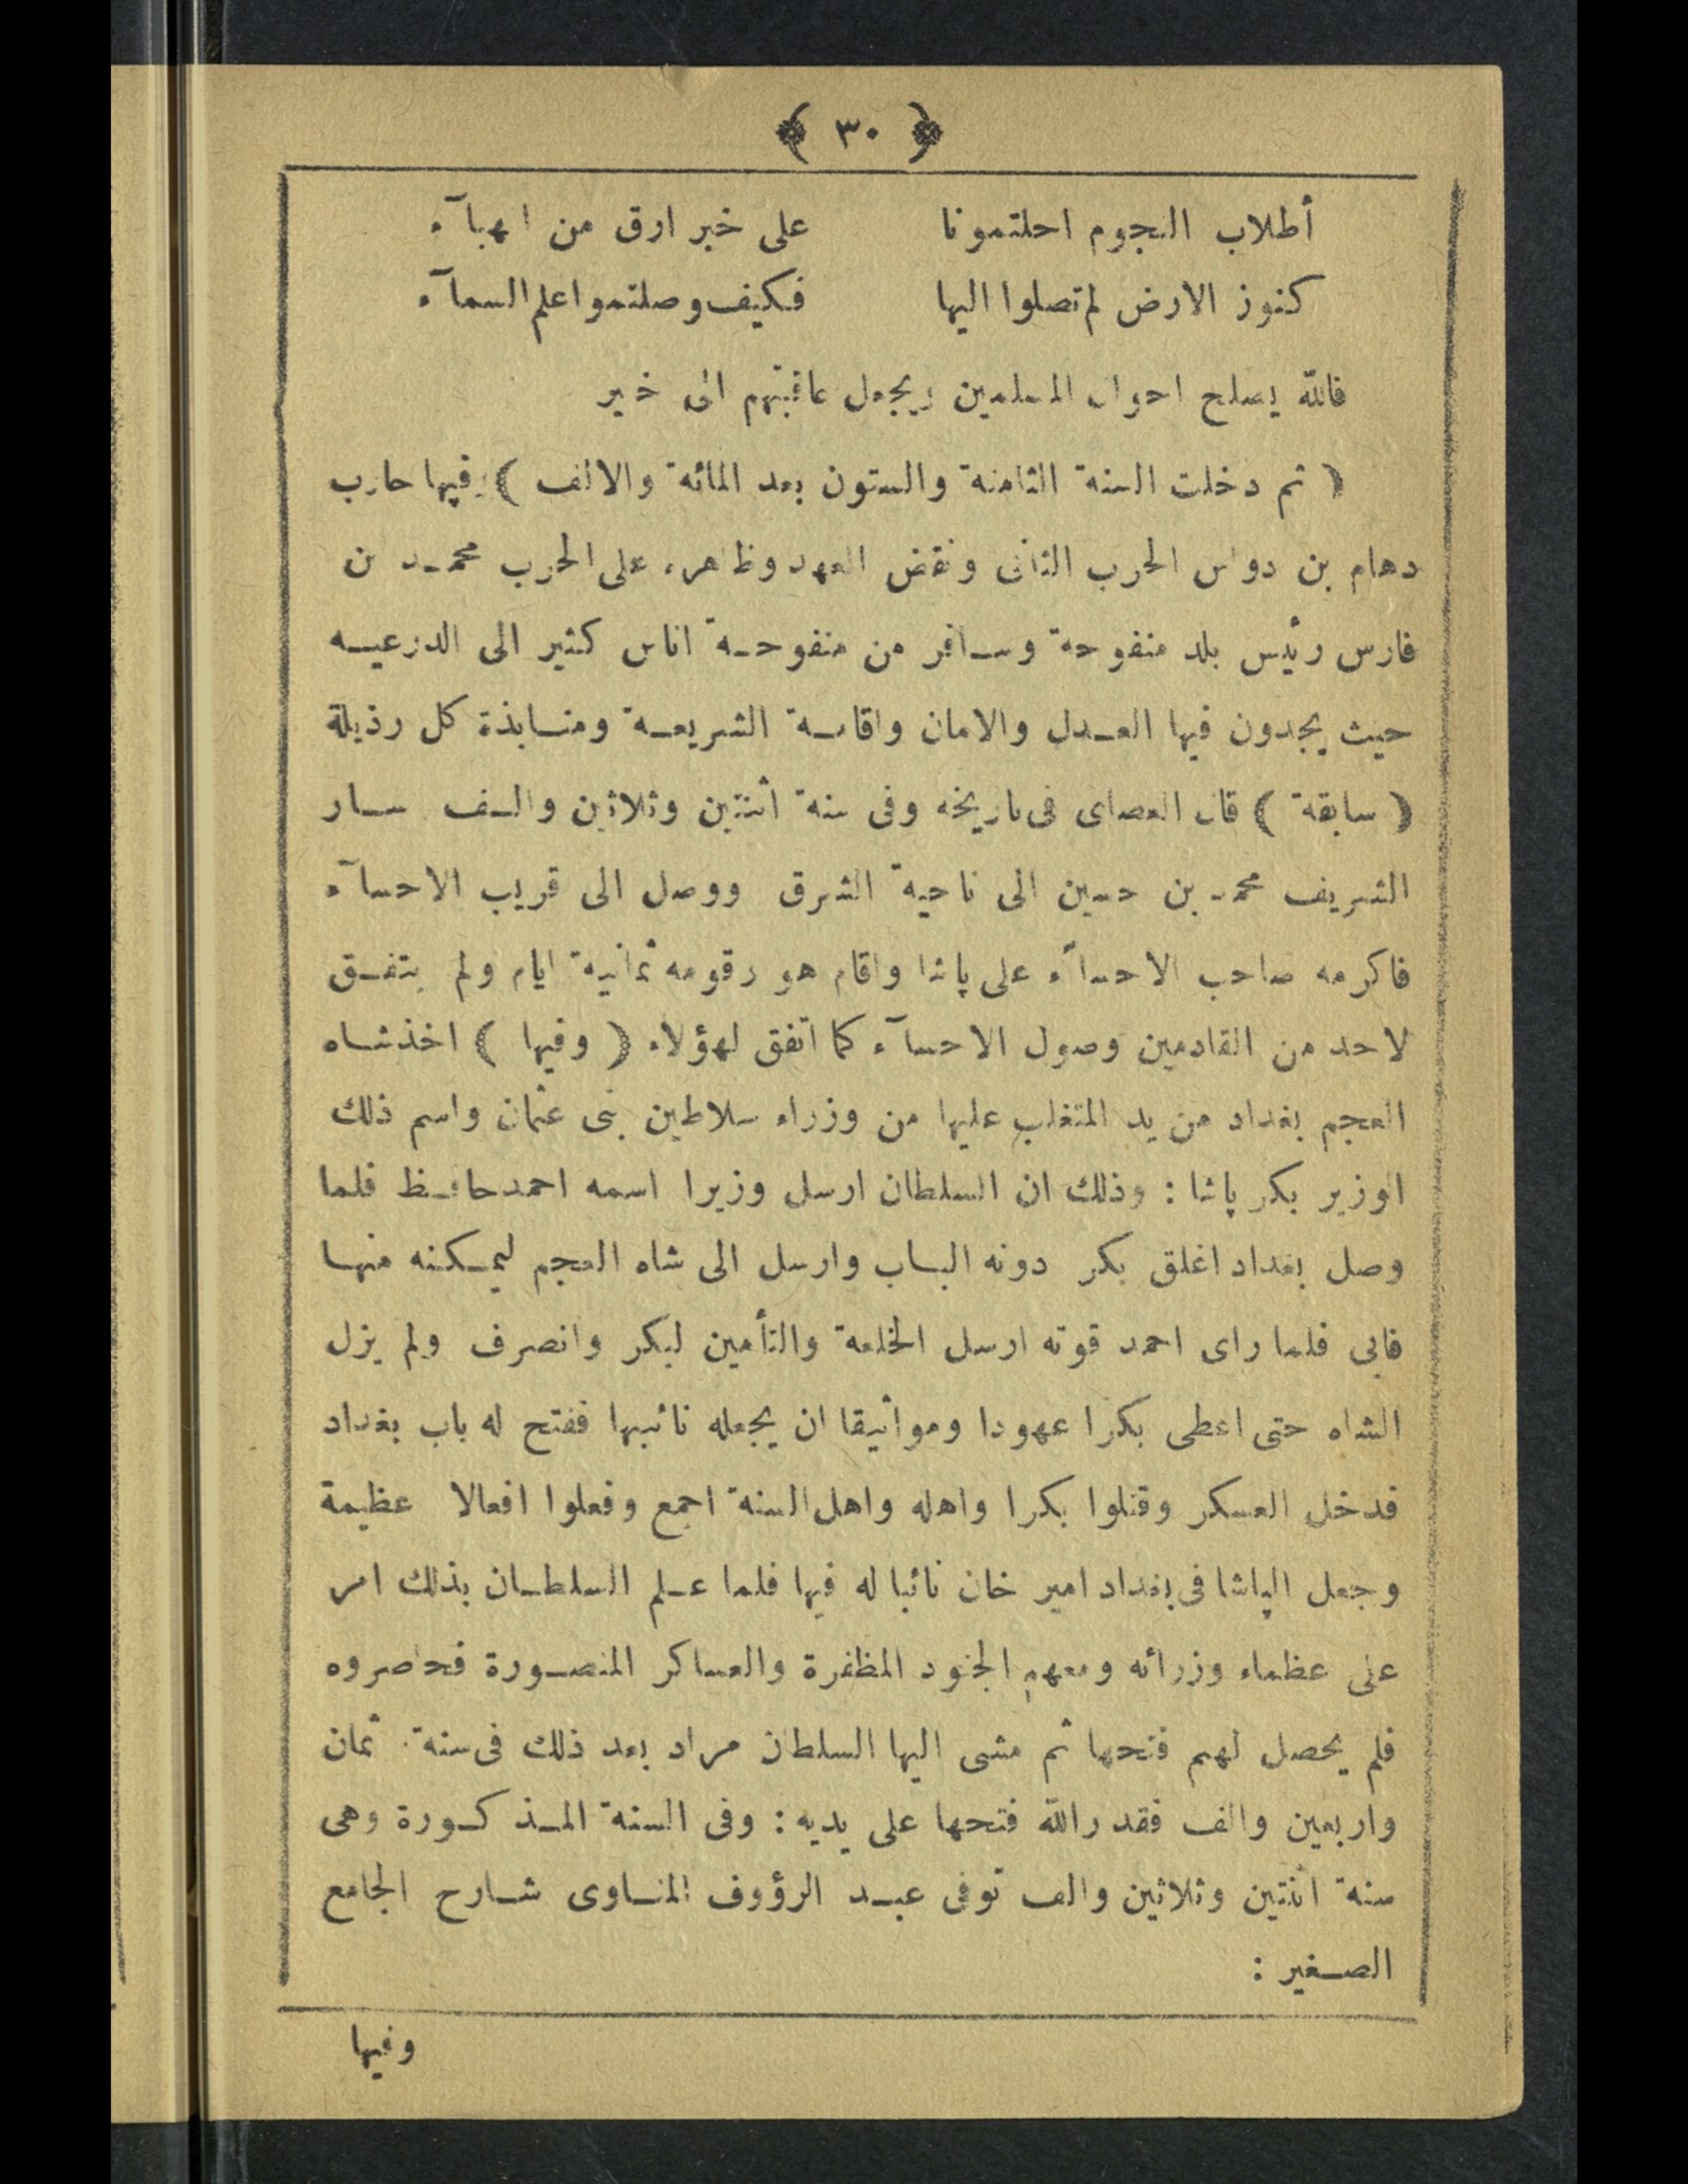 ﴿ ٣٠ ﴾
أطلاب النجوم احلتمونا على خبر ارق من الهبآء
كنوز الارض لم تصلوا اليها فكيف وصلتموا علم السمآء
فالله يصلح احوال المسلمين ويجعل عاقبتهم الى خير
( ثم دخلت السنة الثامنة والستون بعد المائة والالف ) وفيها حارب
دهام بن دواس الحرب الثانى ونقض العهد وظاهره على الحرب محمد بن
فارس رئيس بلد منفوحة وسافر من منفوحة اناس كثير الى الدرعيه
حيث يجدون فيها العدل والامان واقامة الشريعة ومنابذة كل رذيلة
( سابقة ) قال العصامى فى تاريخه وفى سنة أثنتين وثلاثين والف سار
الشريف محمد بن حسين الى ناحية الشرق ووصل الى قريب الاحسآء
فاكرمه صاحب الاحسآء على پاشا واقام هو وقومه ثمانية ايام ولم يتفق
لاحد من القادمين وصول الاحسآء كما اتفق لهؤلاء ( وفيها ) اخذ شاه
العجم بغداد من يد المتغلب عليها من وزراء سلاطين بنى عثمان واسم ذلك
الوزير بكر پاشا : وذلك ان السلطان ارسل وزيرا اسمه احمد حافظ فلما
وصل بغداد اغلق بكر دونه الباب وارسل الى شاه العجم ليمكنه منها
فابى فلما راى احمد قوته ارسل الخلعة والتأمين لبكر وانصرف ولم يزل
الشاه حتى اعطى بكرا عهودا ومواثيقا ان يجعله نائبها ففتح له باب بغداد
فدخل العسكر وقتلوا بكرا واهله واهل السنة اجمع وفعلوا افعالا عظيمة
وجعل الپاشا فى بغداد امير خان نائبا له فيها فلما علم السلطان بذلك امر
على عظماء وزرائه ومعهم الجنود المظفرة والعساكر المنصورة فحاصروه
فلم يحصل لهم فتحها ثم مشى اليها السلطان مراد بعد ذلك فى سنة ثمان
واربعين والف فقدر الله فتحها على يديه : وفى السنة المذكورة وهى
سنة اثنتين وثلاثين والف توفى عبد الرؤوف المناوى شارح الجامع
الصغير :
وفيها